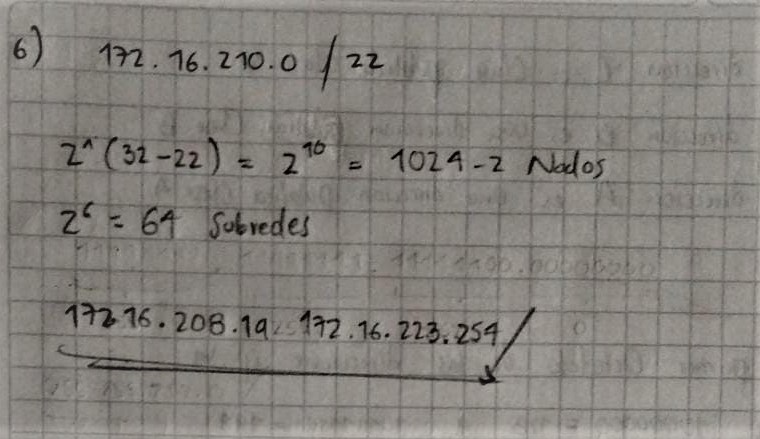 6) 172.16.210.0 / 22
2^(32-22) = 2^10 = 1024-2 Nodos
2^6 = 64 Subredes
172 16.208.1a 172.16.223.254